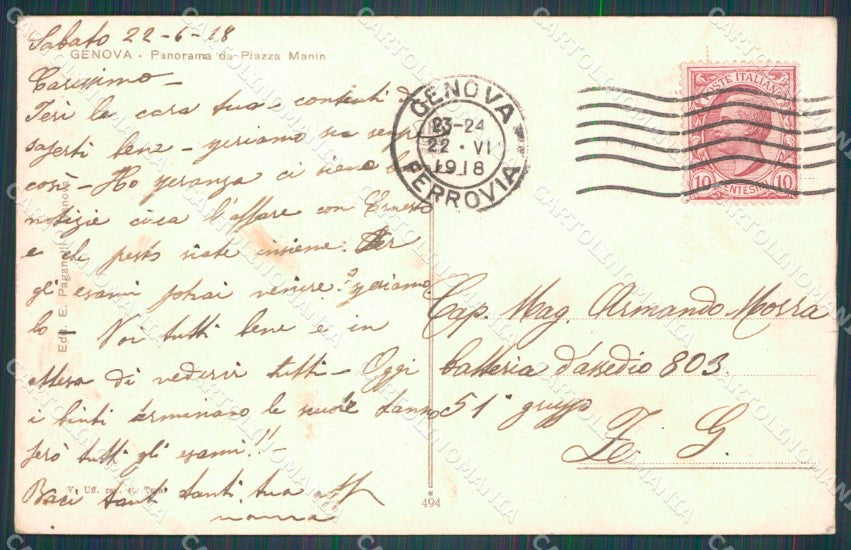 Sabato 22-6-18
GENOVA - Panorama da Piazza Manin
Carissimo -
Ieri la cara tua - contenti di
saperti bene - speriamo sia sempre
così - Ho speranza ci siano
notizie circa l'affare con Ernesto
e che presto siate insieme. Per
gli esami potrai venire? speriamo
lo - Noi tutti bene e in
attesa di vederci tutti - Oggi
i finiti terminano le scuole
però tutti gli esami!!
Baci tanti tanti, tua aff
mamma
Ediz. E. Paganetti
V. Uff. rev. st.
494
GENOVA
FERROVIA
23-24
22 · VI
1918
POSTE ITALIANE
10
CENTESIMI
10
Cap. Mag. Armando Morra
batteria d'assedio 803
51° gruppo
Z. G.
CARTOLINOMANIA